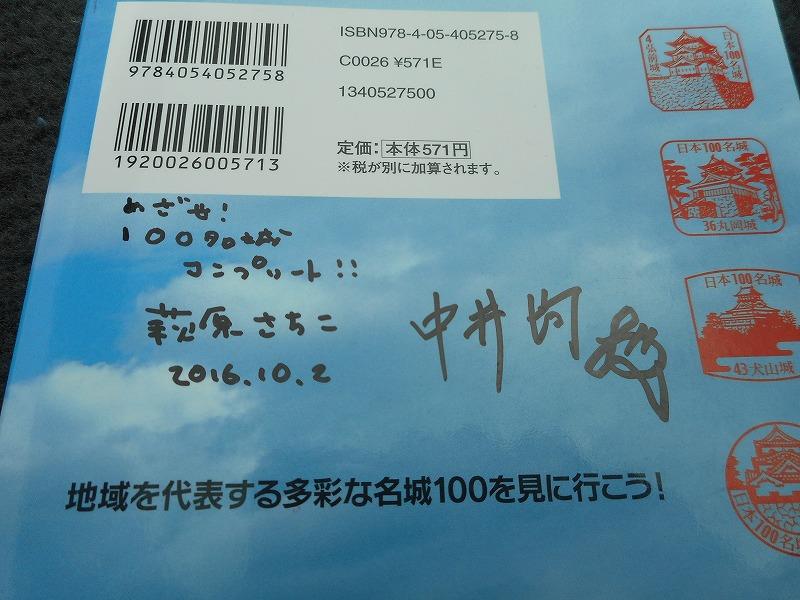 ISBN978-4-05-405275-8
9784054052758
C0026 ¥571E
1340527500
1920026005713
定価：本体571円
※税が別に加算されます。
めざせ！
100名城
コンプリート!!
萩原さちこ
2016.10.2
中井均
地域を代表する多彩な名城100を見に行こう！
日本100名城
4弘前城
日本100名城
36丸岡城
日本100名城
43犬山城
日本100名